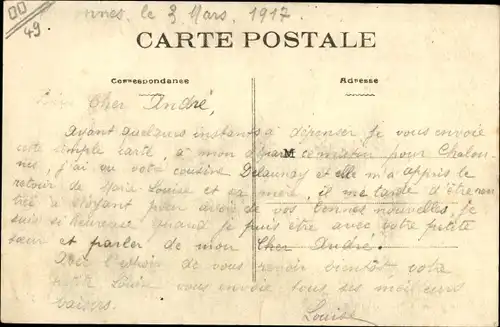 49
le 3 Mars, 1917.
CARTE POSTALE
Correspondance
Adresse
Cher André,
Ayant quelques instants à dépenser je vous envoie
cette simple carte, à mon départ ce matin pour Chalon-
nes, j'ai vu votre cousine Delaunay et elle m'a appris le
retour de Louise et sa il me tarde d'être ren-
trée à pour avoir de vos bonnes nouvelles, je
suis si heureuse quand je puis être avec votre petite
sœur et parler de mon Cher André.
Dans l'espoir de vous revoir bientôt, votre
petite Louise vous envoie tous ses meilleurs
baisers.
Louise